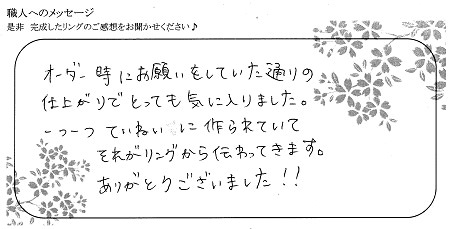 職人へのメッセージ
是非 完成したリングのご感想をお聞かせください♪
オーダー時にお願いをしていた通りの
仕上がりでとっても気に入りました。
一つ一つ ていねいに作られていて
それがリングから伝わってきます。
ありがとうございました！！